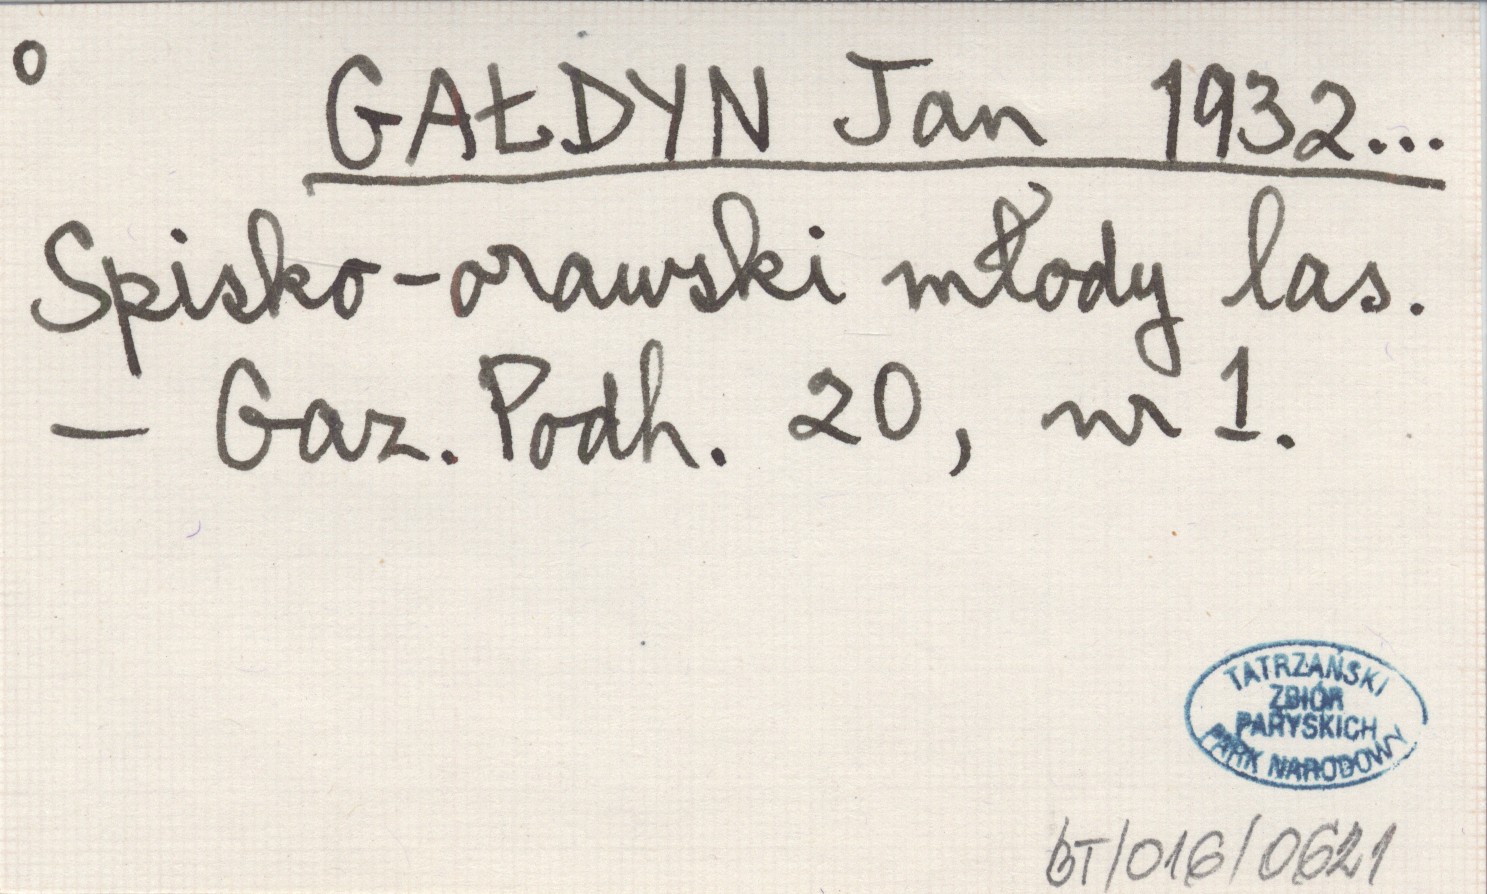 o
GAŁDYN Jan 1932...
Spisko-orawski młody las.
— Gaz. Podh. 20, nr 1.
TATRZAŃSKI
ZBIÓR
PARYSKICH
PARK NARODOWY
BT/016/0621